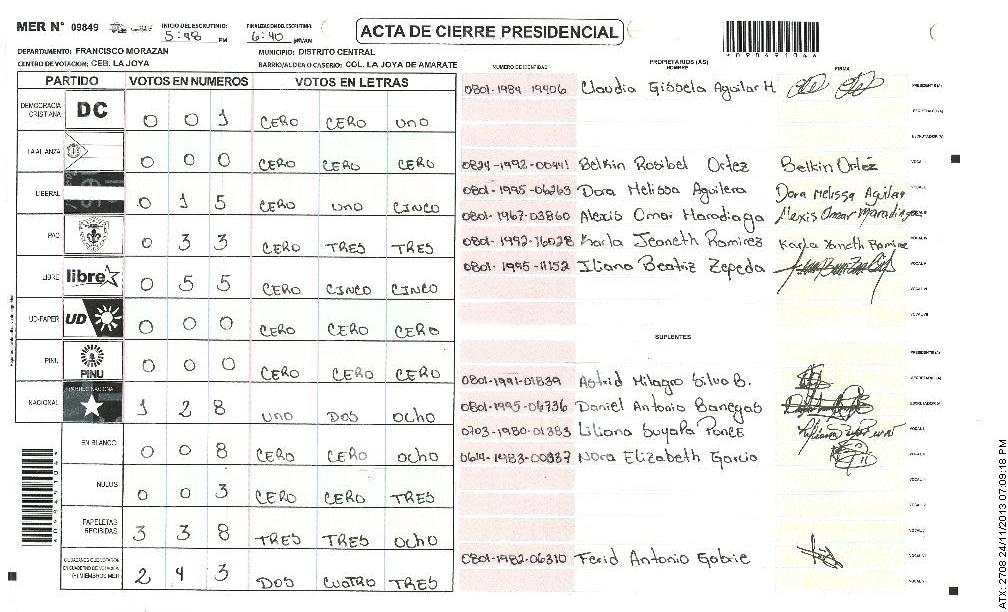 MER N° 09849 INICIO DEL ESCRUTINIO 5:48 PM FINALIZACION DEL ESCRUTINIO 6:40 ACTA DE CIERRE PRESIDENCIAL
DEPARTAMENTO: FRANCISCO MORAZAN MUNICIPIO: DISTRITO CENTRAL
CENTRO DE VOTACION: CEB. LA JOYA BARRIO/ALDEA O CASERIO: COL. LA JOYA DE AMARATE
PARTIDO VOTOS EN NUMEROS VOTOS EN LETRAS
DEMOCRACIA CRISTIANA DC 0 0 1 CERO CERO UNO
LA ALIANZA 0 0 0 CERO CERO CERO
LIBERAL 0 1 5 CERO UNO CINCO
PAC 0 3 3 CERO TRES TRES
LIBRE libre 0 5 5 CERO CINCO CINCO
UD-FAPER UD 0 0 0 CERO CERO CERO
PINU PINU 0 0 0 CERO CERO CERO
NACIONAL 1 2 8 UNO DOS OCHO
EN BLANCO 0 0 8 CERO CERO OCHO
NULOS 0 0 3 CERO CERO TRES
PAPELETAS RECIBIDAS 3 3 8 TRES TRES OCHO
CIUDADANOS QUE VOTARON EN CUADERNO DE VOTACION (+) MIEMBROS MER 2 4 3 DOS CUATRO TRES
NUMERO DE IDENTIDAD PROPIETARIOS (AS) NOMBRE FIRMA
0801-1984 19406 Claudia Gissela Aguilar H PRESIDENTE (A)
SECRETARIO (A)
ESCRUTADOR (A)
0824-1992-00441 Belkin Rosibel Ortez Belkin Ortéz
0801-1995-06263 Dora Melissa Aguilera Dora Melissa Aguilar
0801-1967-03860 Alexis Omar Maradiaga Alexis Omar Maradiaga
0801-1992-16028 Karla Jeaneth Ramirez Karla Yaneth Ramirez
0801-1995-11152 Iliana Beatriz Zepeda
SUPLENTES
PRESIDENTE (A)
0801-1991-01839 Astrid Milagro Silva B. SECRETARIO (A)
0801-1995-06736 Daniel Antonio Banegas ESCRUTADOR (A)
0703-1980-01383 Liliana Suyapa Ponce
0614-1983-00337 Nora Elizabeth Garcia
0801-1982-06310 Ferid Antonio Gabrie
ATX: 2708 24/11/2013 07:09:18 PM